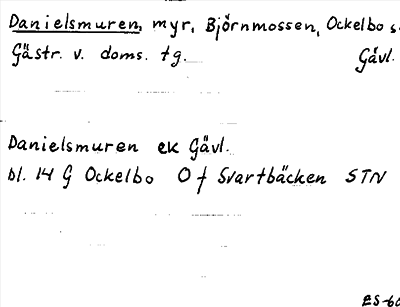 Danielsmuren, myr, Björnmossen, Ockelbo s.
Gästr. v. doms. tg. Gävl.
Danielsmuren ek Gävl.
bl. 14 G Ockelbo O f Svartbäcken STN
ES-60